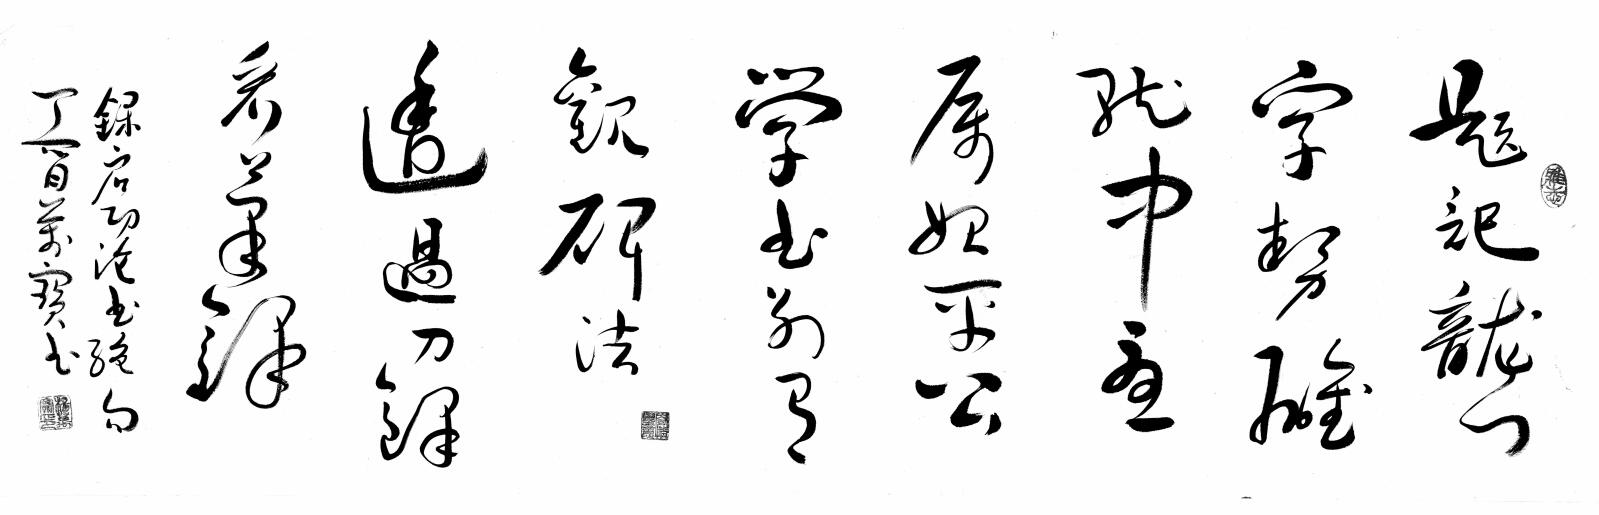 题记龙门
字势雄
就中尤
属始平公
学书别有
观碑法
透过刀锋
看笔锋
录启功论书绝句
丁酉万宝书